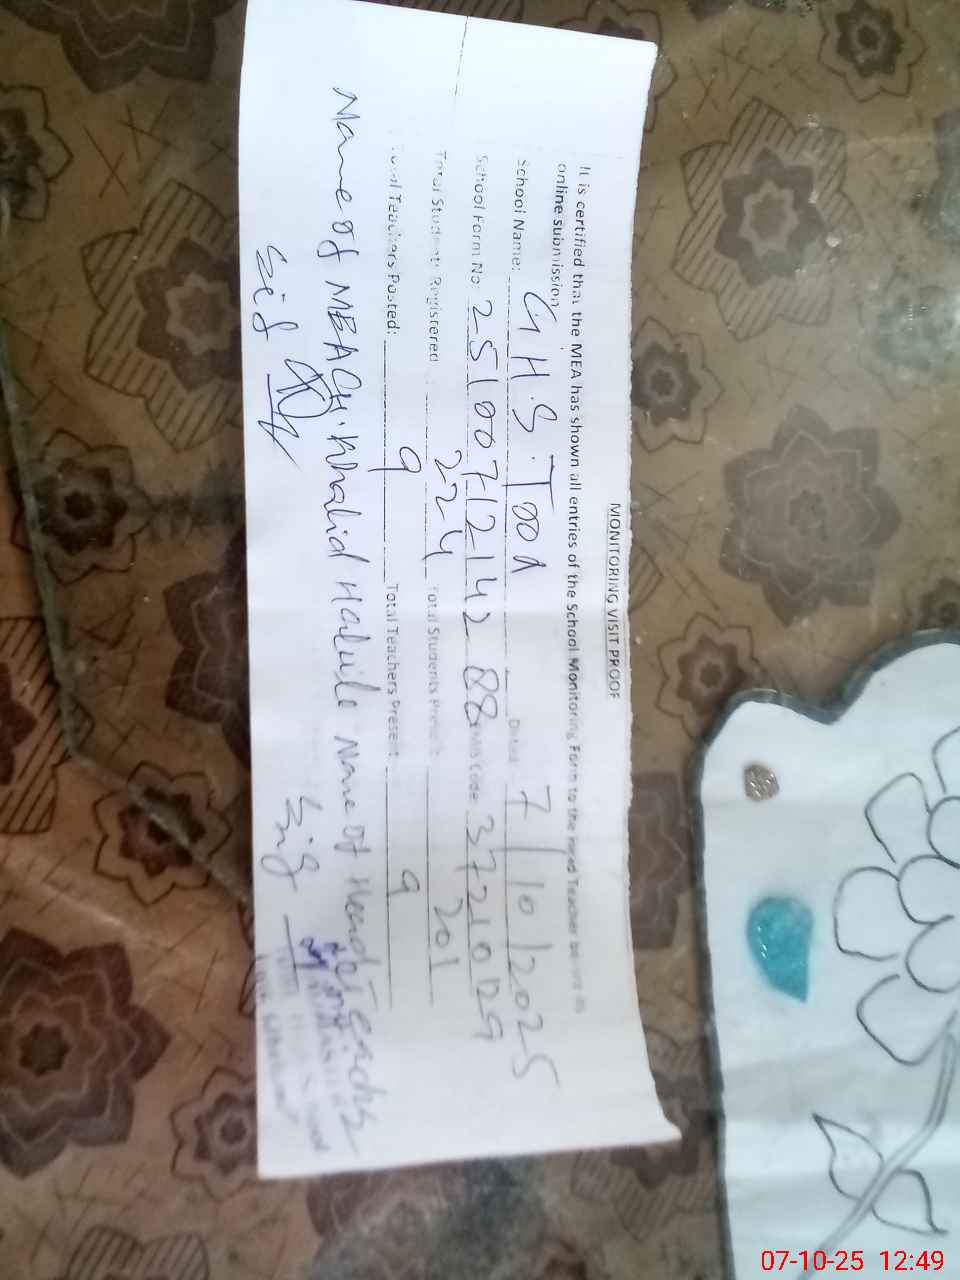 MONITORING VISIT PROOF
It is certified that the MEA has shown all entries of the School Monitoring Form to the Head Teacher before its
online submission
School Name: G H.S. Tooa Dated 7/10/2025
School Form No 2510071214288 EMIS Code 37210129
Total Students Registered 224 Total Students Present: 201
Total Teachers Posted: 9 Total Teachers Present: 9
Name of MEA CH. Khalid Name of Head Teacher
Sig Sig
07-10-25 12:49